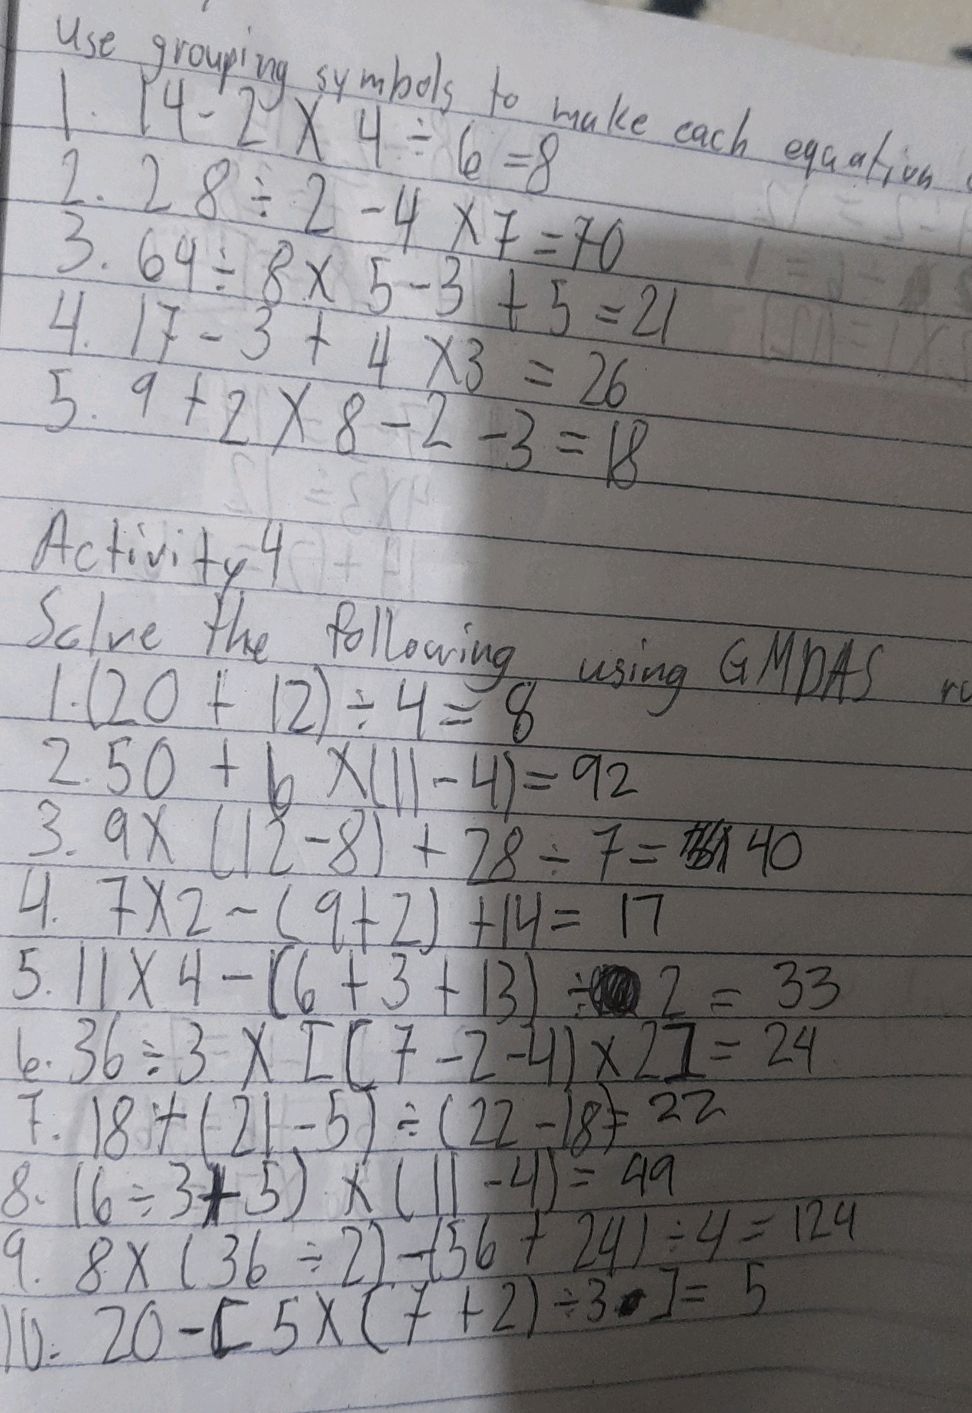 Use grouping symbols to make each equation
1. 14 - 2 X 4 ÷ 6 = 8
2. 28 ÷ 2 - 4 X 7 = 70
3. 64 ÷ 8 X 5 - 3 + 5 = 21
4. 17 - 3 + 4 X 3 = 26
5. 9 + 2 X 8 - 2 - 3 = 18
Activity 4
Solve the following using GMDAS
1. (20 + 12) ÷ 4 = 8
2. 50 + 6 X (11 - 4) = 92
3. 9 X (12 - 8) + 28 ÷ 7 = 40
4. 7 X 2 - (9 + 2) + 14 = 17
5. 11 X 4 - (6 + 3 + 13) ÷ 2 = 33
6. 36 ÷ 3 X [(7 - 2 - 4) x 2] = 24
7. 18 + (21 - 5) ÷ (22 - 18) = 22
8. (6 ÷ 3 + 5) X (11 - 4) = 49
9. 8 X (36 ÷ 2) - (56 + 24) ÷ 4 = 124
10. 20 - [5 X (7 + 2) ÷ 3] = 5